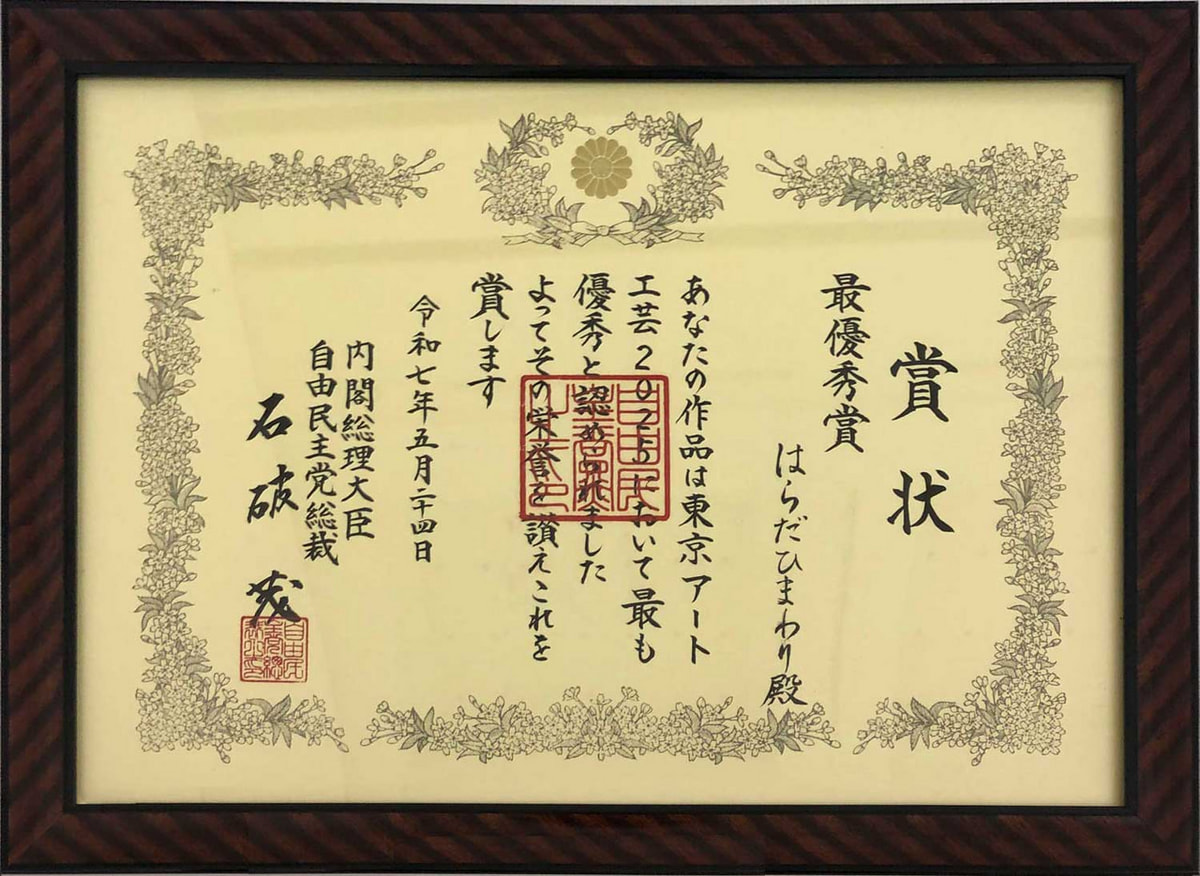 賞状
最優秀賞
はらだひまわり殿
あなたの作品は東京アート
工芸2025において最も
優秀と認められました
よってその栄誉を讃えこれを
賞します
令和七年五月二十四日
内閣総理大臣
自由民主党総裁
石破茂